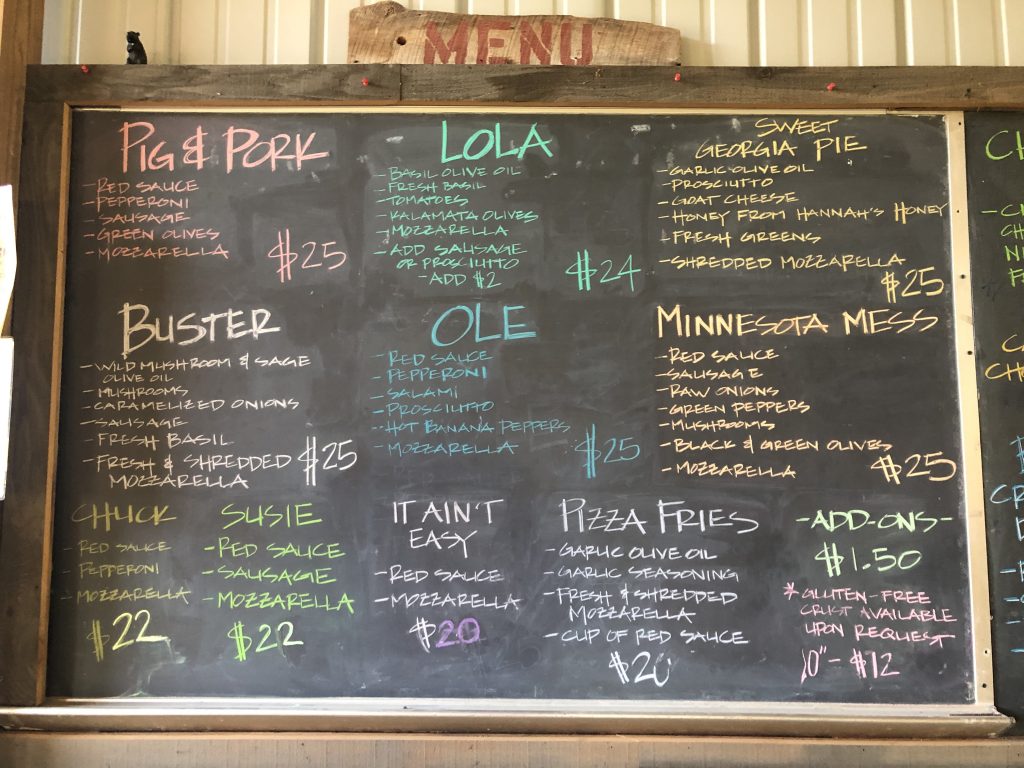 MENU
PIG & PORK
-RED SAUCE
-PEPPERONI
-SAUSAGE
-GREEN OLIVES
-MOZZARELLA
$25
LOLA
-BASIL OLIVE OIL
-FRESH BASIL
-TOMATOES
-KALAMATA OLIVES
-MOZZARELLA
-ADD SAUSAGE
OR PROSCIUTTO
-ADD $2
$24
SWEET
GEORGIA PIE
-GARLIC OLIVE OIL
-PROSCIUTTO
-GOAT CHEESE
-HONEY FROM HANNAH'S HONEY
-FRESH GREENS
-SHREDDED MOZZARELLA
$25
BUSTER
-WILD MUSHROOM & SAGE
OLIVE OIL
-MUSHROOMS
-CARAMELIZED ONIONS
-SAUSAGE
-FRESH BASIL
-FRESH & SHREDDED
MOZZARELLA
$25
OLE
-RED SAUCE
-PEPPERONI
-SALAMI
-PROSCIUTTO
-HOT BANANA PEPPERS
-MOZZARELLA
$25
MINNESOTA MESS
-RED SAUCE
-SAUSAGE
-RAW ONIONS
-GREEN PEPPERS
-MUSHROOMS
-BLACK & GREEN OLIVES
-MOZZARELLA
$25
CHUCK
-RED SAUCE
-PEPPERONI
-MOZZARELLA
$22
SUSIE
-RED SAUCE
-SAUSAGE
-MOZZARELLA
$22
IT AIN'T
EASY
-RED SAUCE
-MOZZARELLA
$20
PIZZA FRIES
-GARLIC OLIVE OIL
-GARLIC SEASONING
-FRESH & SHREDDED
MOZZARELLA
-CUP OF RED SAUCE
$20
-ADD-ONS-
$1.50
*GLUTEN-FREE
CRUST AVAILABLE
UPON REQUEST
10"-$12